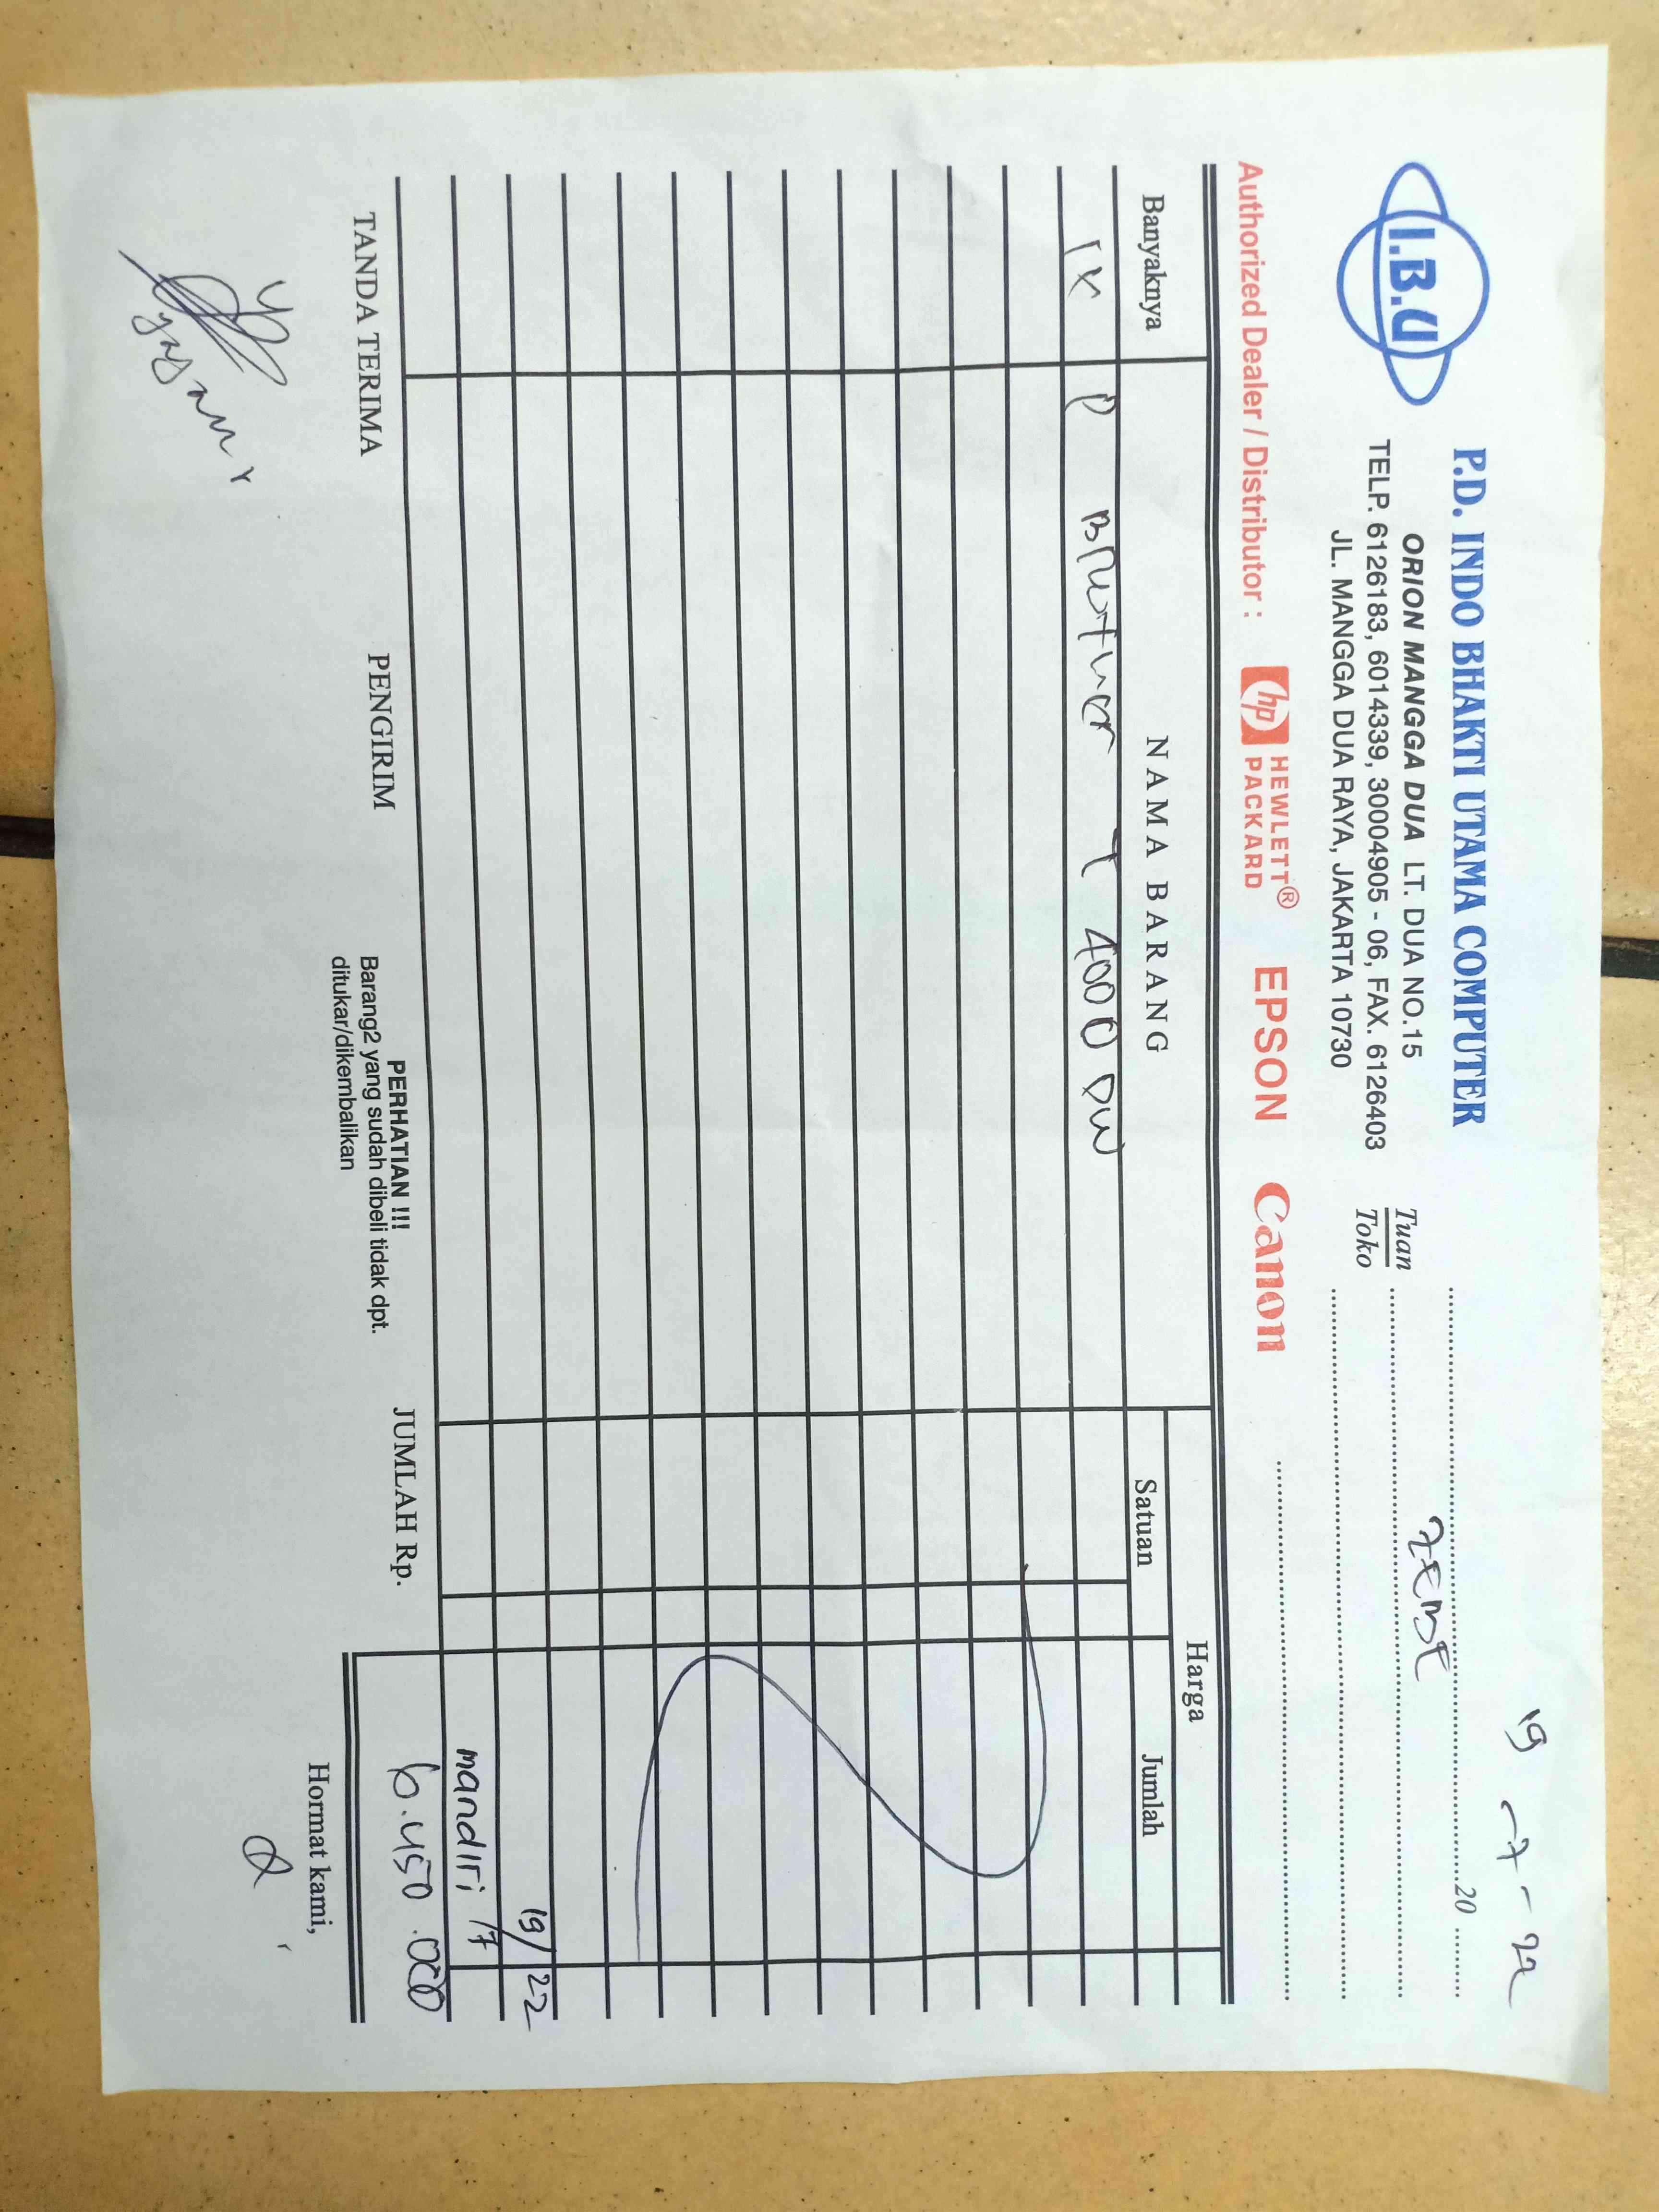 19 - 7 - 22
I.B.U
P.D. INDO BHAKTI UTAMA COMPUTER
ORION MANGGA DUA LT. DUA NO.15
TELP. 6126183, 6014339, 30004905 - 06, FAX. 6126403
JL. MANGGA DUA RAYA, JAKARTA 10730
20
Tuan
Toko
Authorized Dealer / Distributor :
hp HEWLETT®
PACKARD
EPSON
Canon
Banyaknya
NAMA BARANG
Harga
Satuan
Jumlah
1X P Brother T 4000 DW
19/22
mandiri /7
JUMLAH Rp. 6.450.000
TANDA TERIMA
PENGIRIM
PERHATIAN !!!
Barang2 yang sudah dibeli tidak dpt.
ditukar/dikembalikan
Hormat kami,